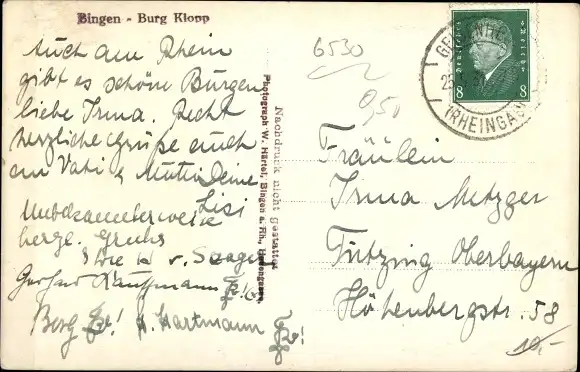 Bingen - Burg Klopp
Auch am Rhein
gibt es schöne Burgen
liebe Irma. Recht
herzliche Grüße auch
an Vati & Mutti Deine
Lisi
Unbekannterweise
herzl. Gruß
v.
Gerhard Kauffmann
Berg H. Hartmann
Nachdruck nicht gestattet
Photograph W. Härtel, Bingen a. Rh.,
6530
0,50
Deutsches Reich
8 8
(RHEINGAU)
Fräulein
Irma Metzger
Tutzing Oberbayern
Höhenbergstr. 58
10,-